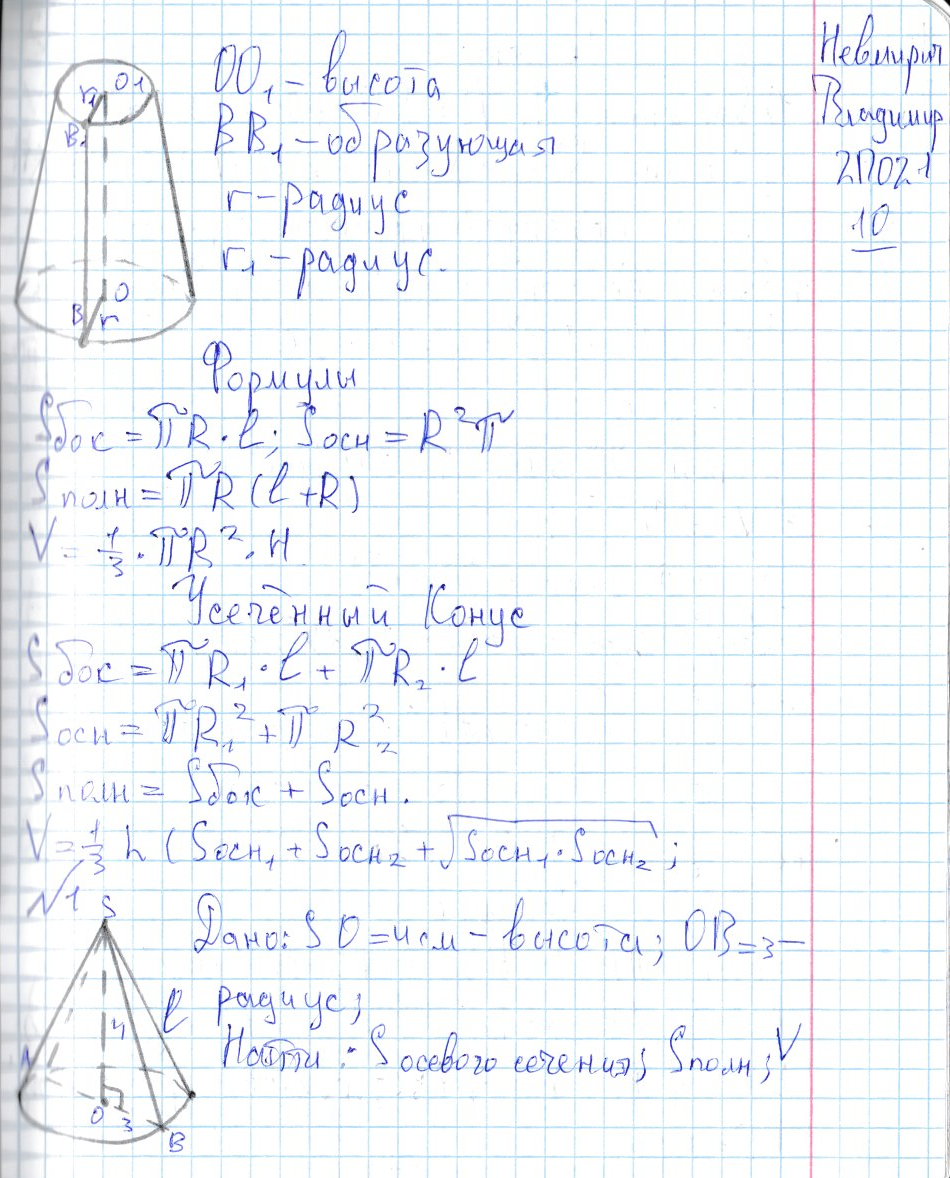 Невмирич
Владимир
2П021
10
OO₁ – высота
BB₁ – образующая
r – радиус
r₁ – радиус.
r₁ O₁
B₁
O
B r
Формулы
Sбок = πR·l; Sосн = R²π
Sполн = πR(l+R)
V = 1/3·πR²·H
Усечённый Конус
Sбок = πR₁·l + πR₂·l
Sосн = πR₁² + πR₂²
Sполн = Sбок + Sосн.
V = 1/3 h (Sосн₁ + Sосн₂ + √Sосн₁·Sосн₂;
№1
Дано: SO = 4см – высота; OB = 3 –
радиус;
Найти: Sосевого сечения; Sполн; V
S
l
4
A
O 3
B